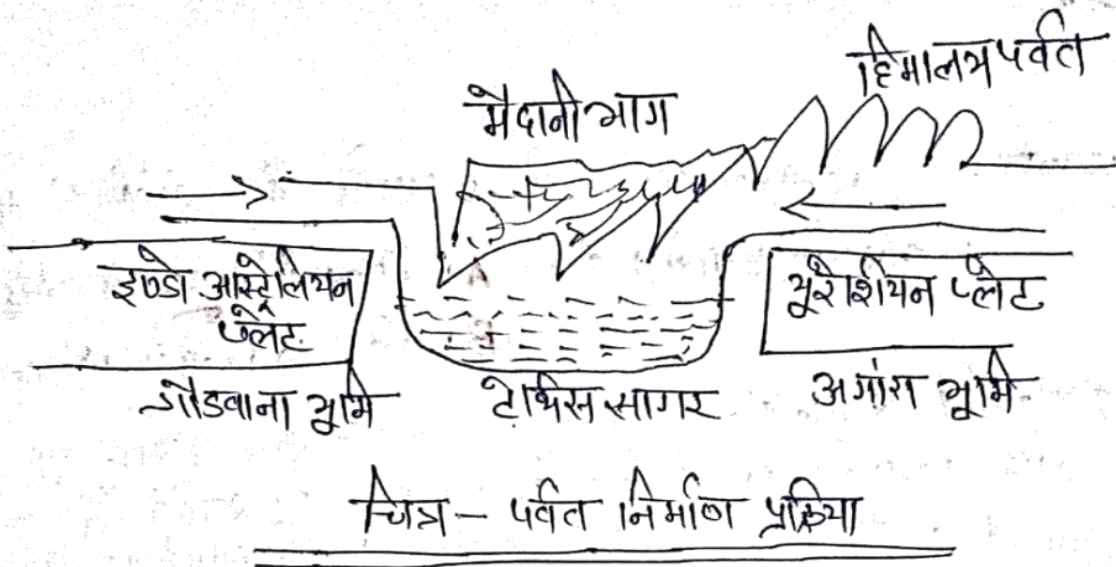 हिमालय पर्वत
मैदानी भाग
इण्डो आस्ट्रेलियन
प्लेट
यूरेशियन प्लेट
गोंडवाना भूमि
टेथिस सागर
अगांरा भूमि
चित्र - पर्वत निर्माण प्रक्रिया